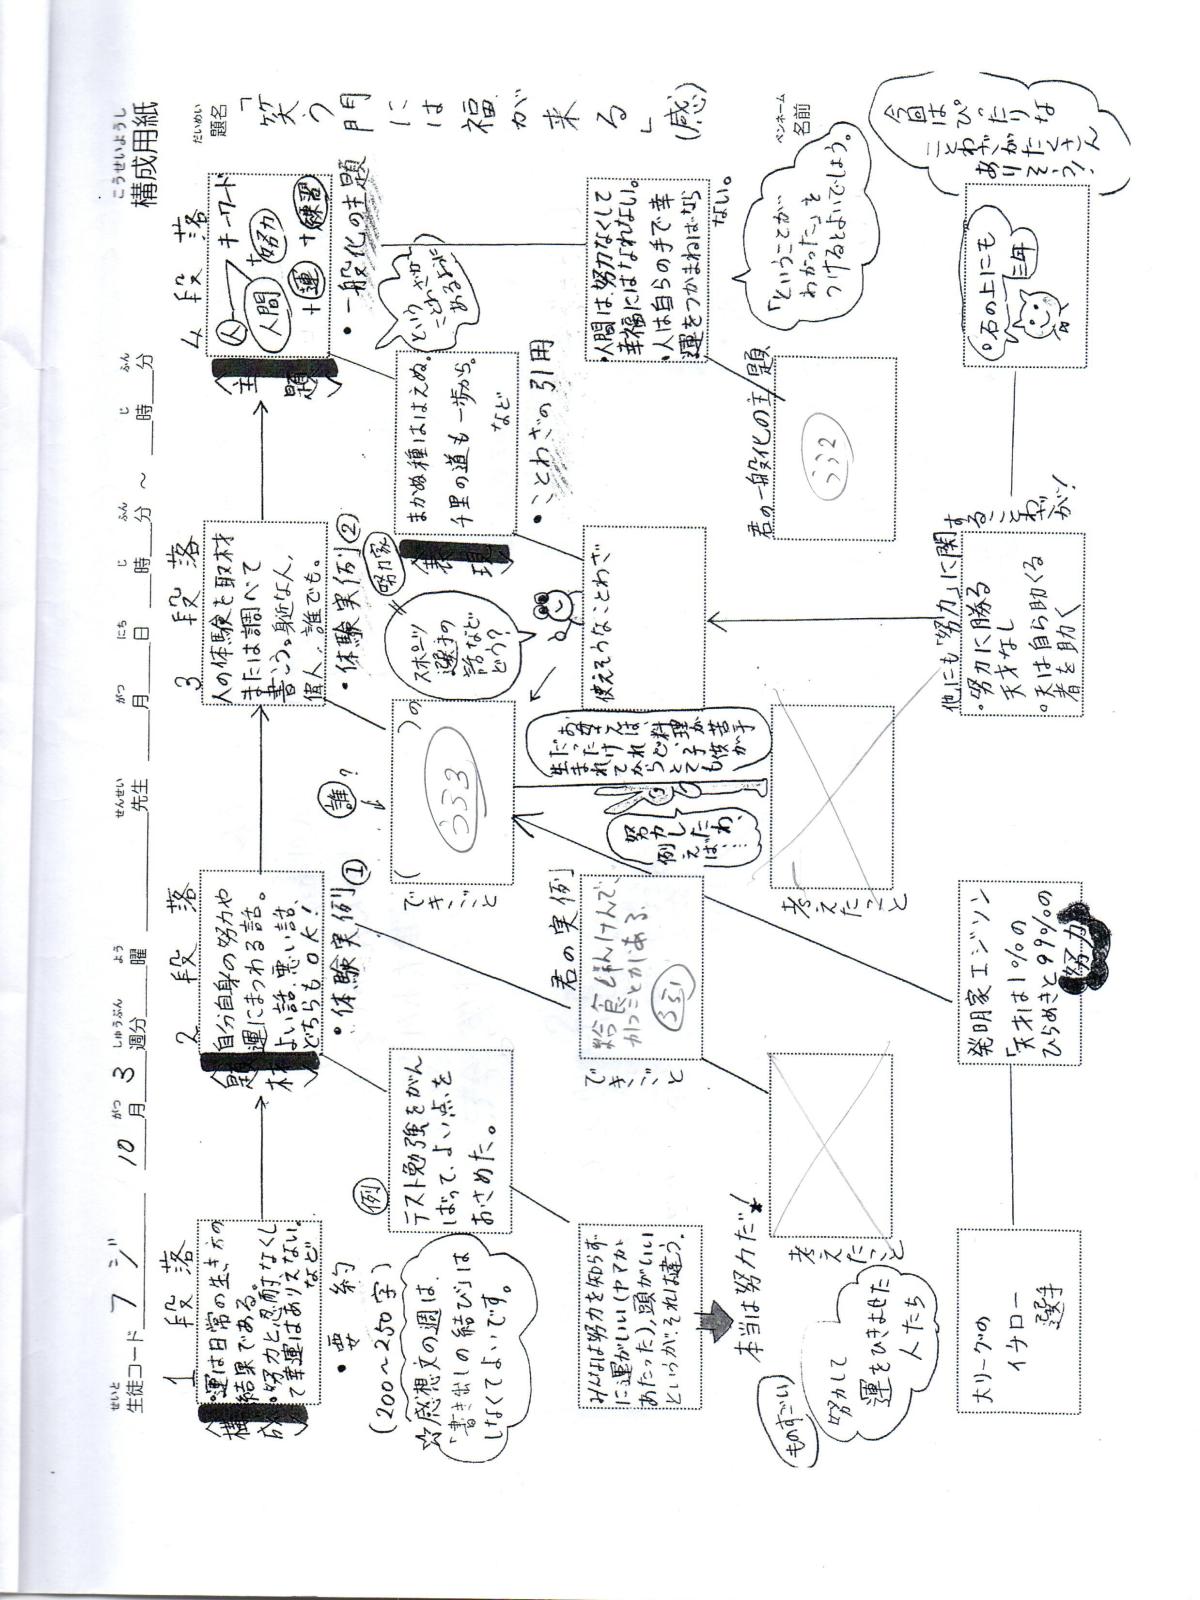 構成用紙
こうせいようし
生徒コード フジ 10月 3週分 曜 先生 月 日 時 分 ~ 時 分
せいと がつ しゅうぶん よう せんせい がつ にち じ ふん じ ふん
題名
だいめい
「笑う門には福が来る」(感)
ペンネーム
名前
1段落
〈構成〉
・運は日常の生き方の
結果である。
・努力と忍耐なくし
て幸運はありえない。
など
・要約
(200〜250字)
☆感想文の週は、
「書き出しの結び」は
しなくてよいです。
2段落
〈題材〉
自分自身の努力や
運にまつわる話。
よい話、悪い話、
どちらもOK!
・体験実例①
例
テスト勉強をがん
ばって、よい点を
おさめた。
みんなは努力を知らず
に運がいい(ヤマが
あたった)、頭がいい
というが、それは違う。
本当は努力だ!
君の実例
給食じゃんけんで、
かったことがある。
ふふ1
できごと
考えたこと
3段落
人の体験を取材
または調べて
書こう。身近な人、
偉人、誰でも。
・体験実例②
誰?
( )の
できごと
ふふ3
努力家
スポーツ
選手の
話など
どう?
お母さんは、
だったけれど、
料理が苦手
子供が
生まれてからとても
努力したわ、
例えば、…
考えたこと
4段落
〈主題〉
キーワード
人
人間
+努力
+運
+練習
・一般化の主題
という
ことわざが
あるように
〈表現〉
まかぬ種ははえぬ。
千里の道も一歩から。
など
・ことわざの引用
使えそうなことわざ
・人間は、努力なくして
幸福にはなれない。
・人は自らの手で幸
運をつかまねばなら
ない。
「ということが
わかった」と
つけるとよいでしょう。
君の一般化の主題
ふふ2
ものすごい
努力して
運をひきよせた
人たち
大リーグの
イチロー
選手
発明家エジソン
「天才は1%の
ひらめきと99%の
努力
他にも「努力」に関
することわざが!
・努力に勝る
天才なし
・天は自ら助くる
者を助く
。石の上にも
三年
今回はぴったりな
ことわざがたくさん
ありそう!